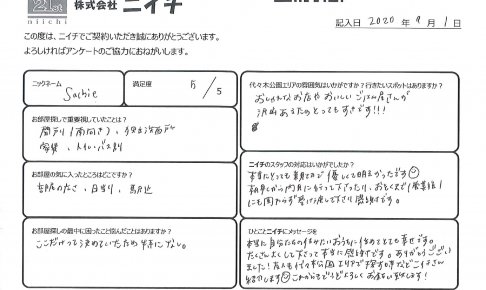 21st
niichi
株式会社 ニイチ
記入日 2020 年 9 月 1 日
この度は、ニイチでご契約いただき誠にありがとうございます。
よろしければアンケートのご協力におねがいします。
ニックネーム
Sachie
満足度
5 / 5
お部屋探しで重要視していたことは?
間取り(南向き)、独立洗面所
家賃、人気バス別
お部屋の気に入ったところはどこですか?
部屋の広さ、日当り、駅近
お部屋探しの最中に困ったこと悩んだことはありますか?
ここだけって決めていたため 特になし。
代々木公園エリアの雰囲気はいかがですか?行きたいスポットはありますか?
おしゃれなお店やおいしいごはん屋さんが
沢山あるためとってもすきです!!!
ニイチのスタッフの対応はいかがでしたか?
本当にとっても親切で優しくて明るかったです
にも関わらず 下さり 感謝です。
ひとことニイチにメッセージを
本当に自分たちの住みたいおうちに住めてとても幸せです。
下さって本当に感謝です。ありがとうござい
ました!友人も代々木公園エリアで探す
紹介します これからもどうぞよろしくお願い致します!